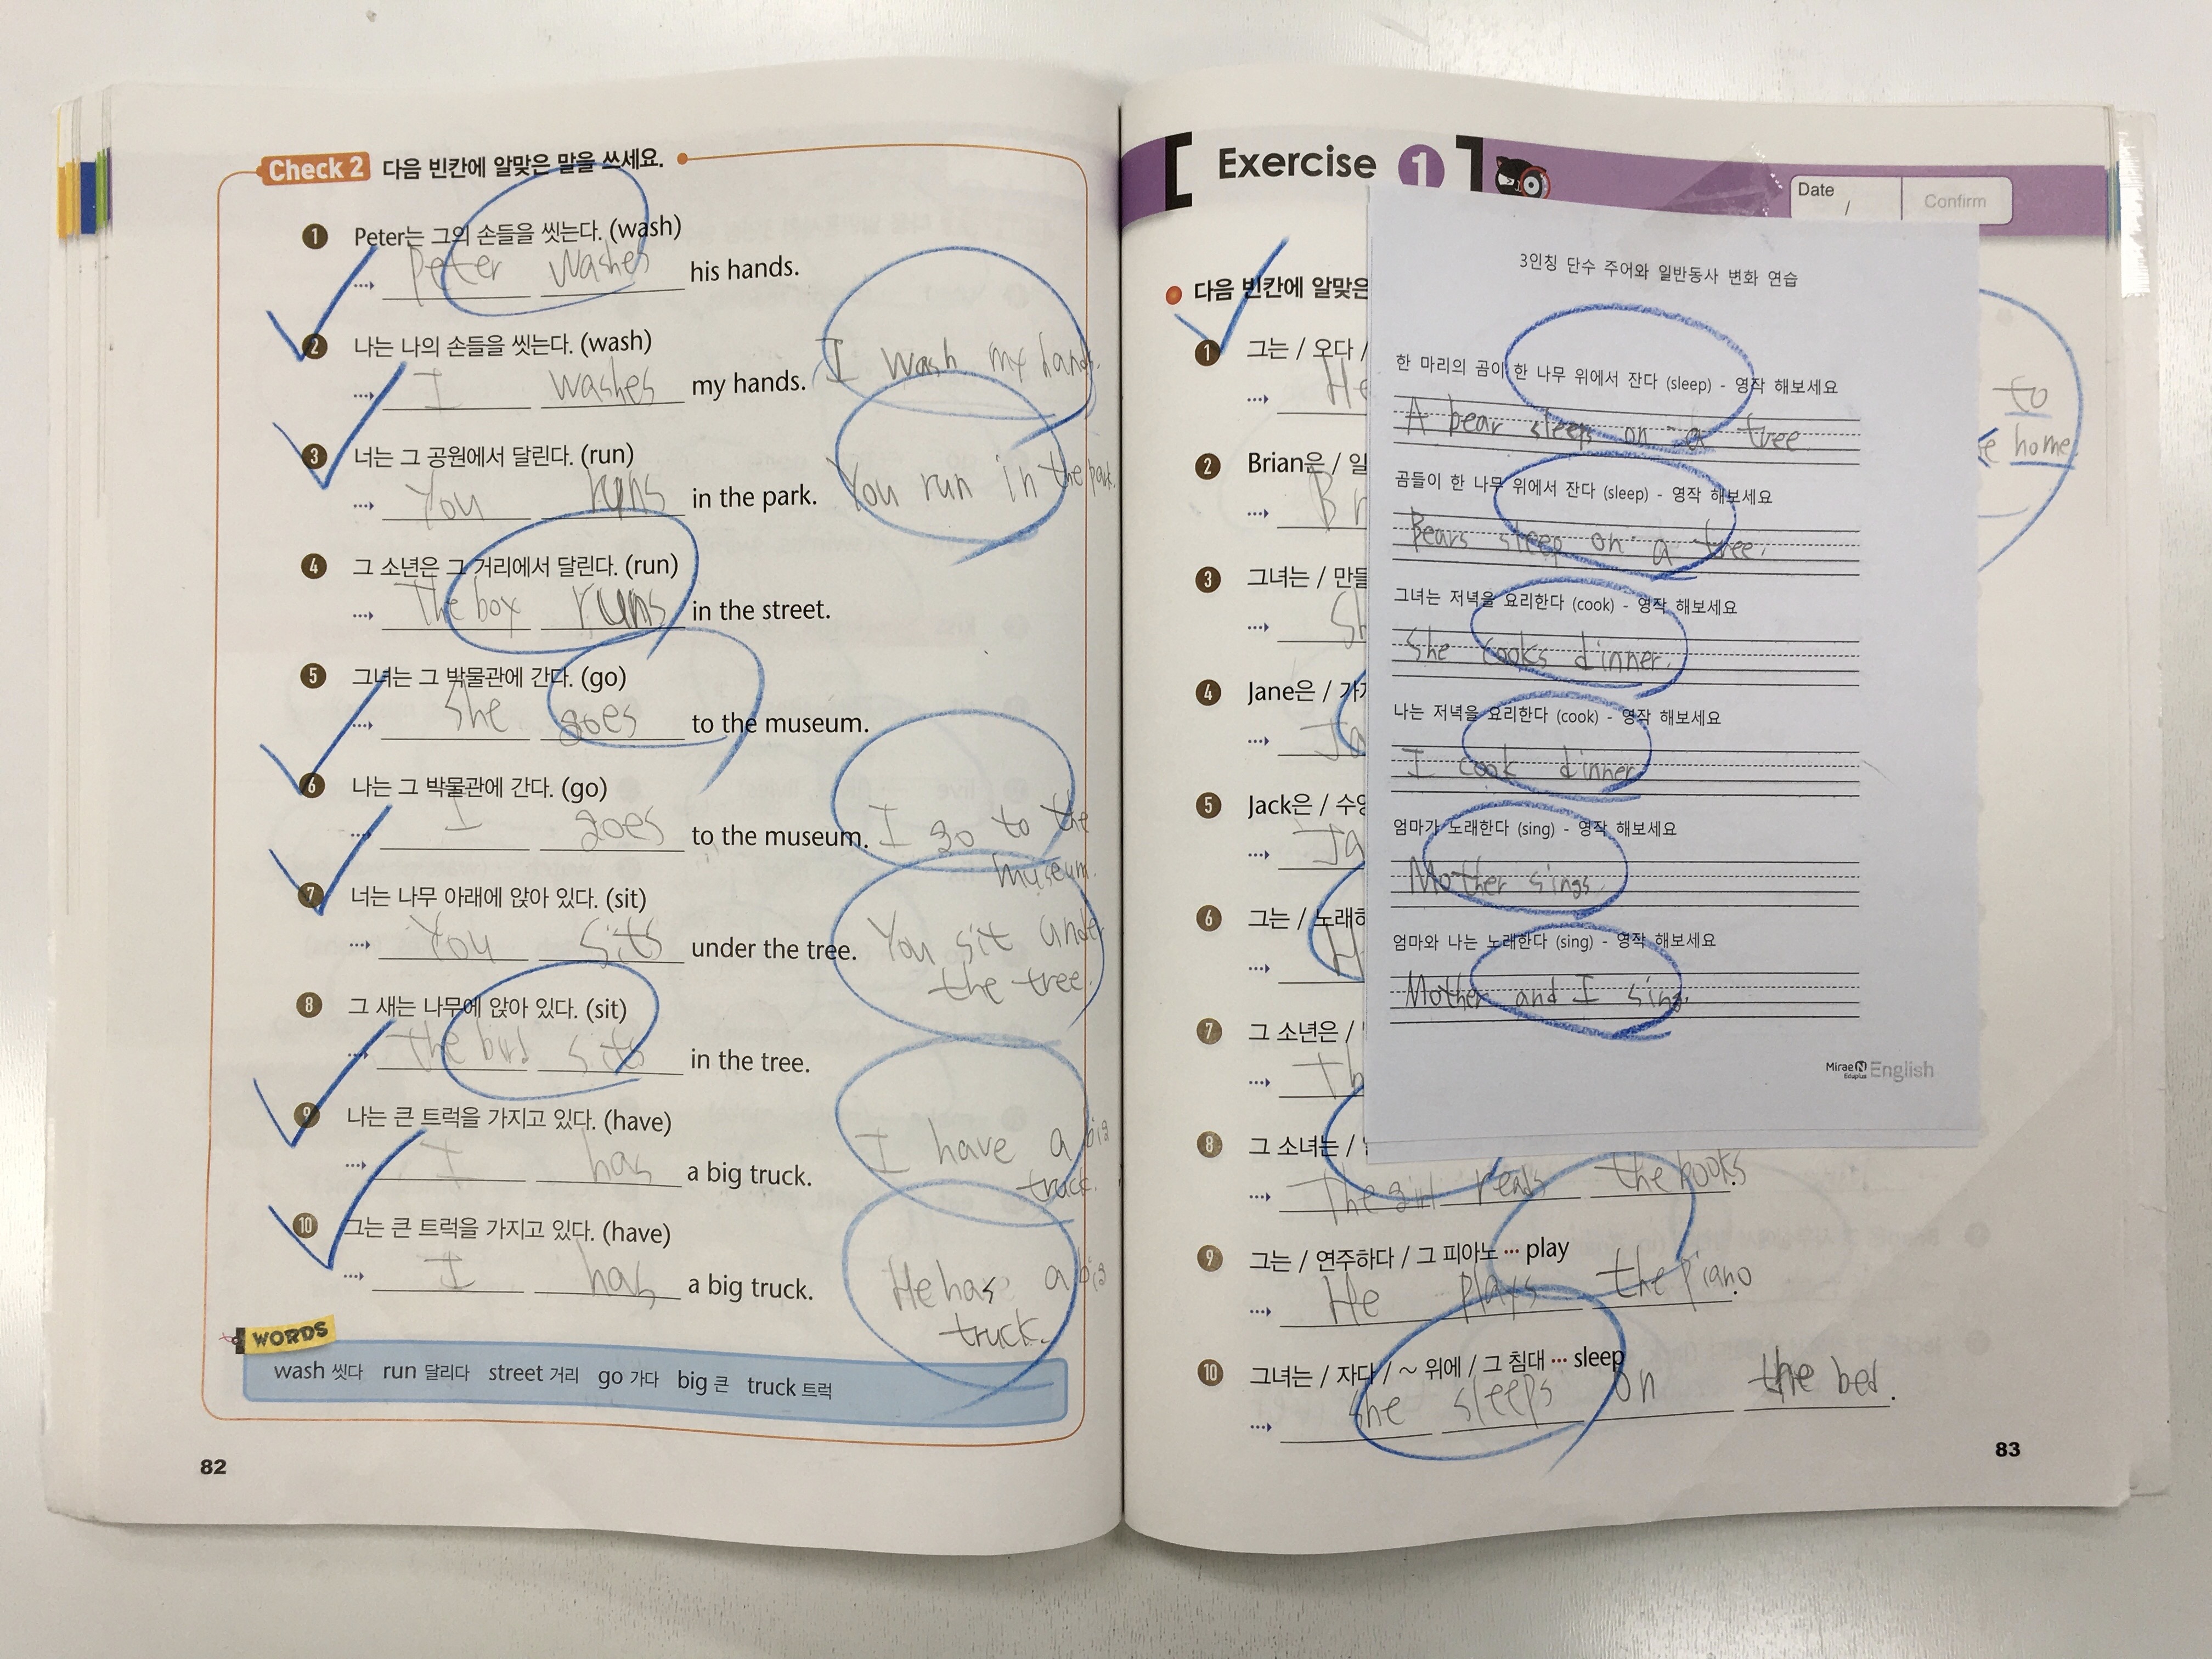 Check 2 다음 빈칸에 알맞은 말을 쓰세요.
1 Peter는 그의 손들을 씻는다. (wash)
Peter washes his hands.
2 나는 나의 손들을 씻는다. (wash)
I washes my hands. I wash my hands.
3 너는 그 공원에서 달린다. (run)
You runs in the park. You run in the park.
4 그 소년은 그 거리에서 달린다. (run)
The box runs in the street.
5 그녀는 그 박물관에 간다. (go)
She goes to the museum.
6 나는 그 박물관에 간다. (go)
I goes to the museum. I go to the
museum.
7 너는 나무 아래에 앉아 있다. (sit)
You sits under the tree. You sit under
the tree.
8 그 새는 나무에 앉아 있다. (sit)
the bird sits in the tree.
9 나는 큰 트럭을 가지고 있다. (have)
I has a big truck. I have a big
truck.
10 그는 큰 트럭을 가지고 있다. (have)
I has a big truck. He has a big
truck.
WORDS
wash 씻다 run 달리다 street 거리 go 가다 big 큰 truck 트럭
82
Exercise 1
Date /
Confirm
다음 빈칸에 알맞은
1 그는 / 오다 /
He
to
home
2 Brian은 / 일
Br
3 그녀는 / 만들
Sh
4 Jane은 / 가
Ja
5 Jack은 / 수영
Ja
6 그는 / 노래하
H
7 그 소년은 /
Th
8 그 소녀는 /
The girl reads the books.
9 그는 / 연주하다 / 그 피아노 ··· play
He plays the piano.
10 그녀는 / 자다 / ~ 위에 / 그 침대 ··· sleep
She sleeps on the bed.
83
3인칭 단수 주어와 일반동사 변화 연습
한 마리의 곰이 한 나무 위에서 잔다 (sleep) - 영작 해보세요
A bear sleeps on a tree.
곰들이 한 나무 위에서 잔다 (sleep) - 영작 해보세요
Bears sleep on a tree.
그녀는 저녁을 요리한다 (cook) - 영작 해보세요
She cooks dinner.
나는 저녁을 요리한다 (cook) - 영작 해보세요
I cook dinner.
엄마가 노래한다 (sing) - 영작 해보세요
Mother sings.
엄마와 나는 노래한다 (sing) - 영작 해보세요
Mother and I sing.
MiraeN Eduplus English